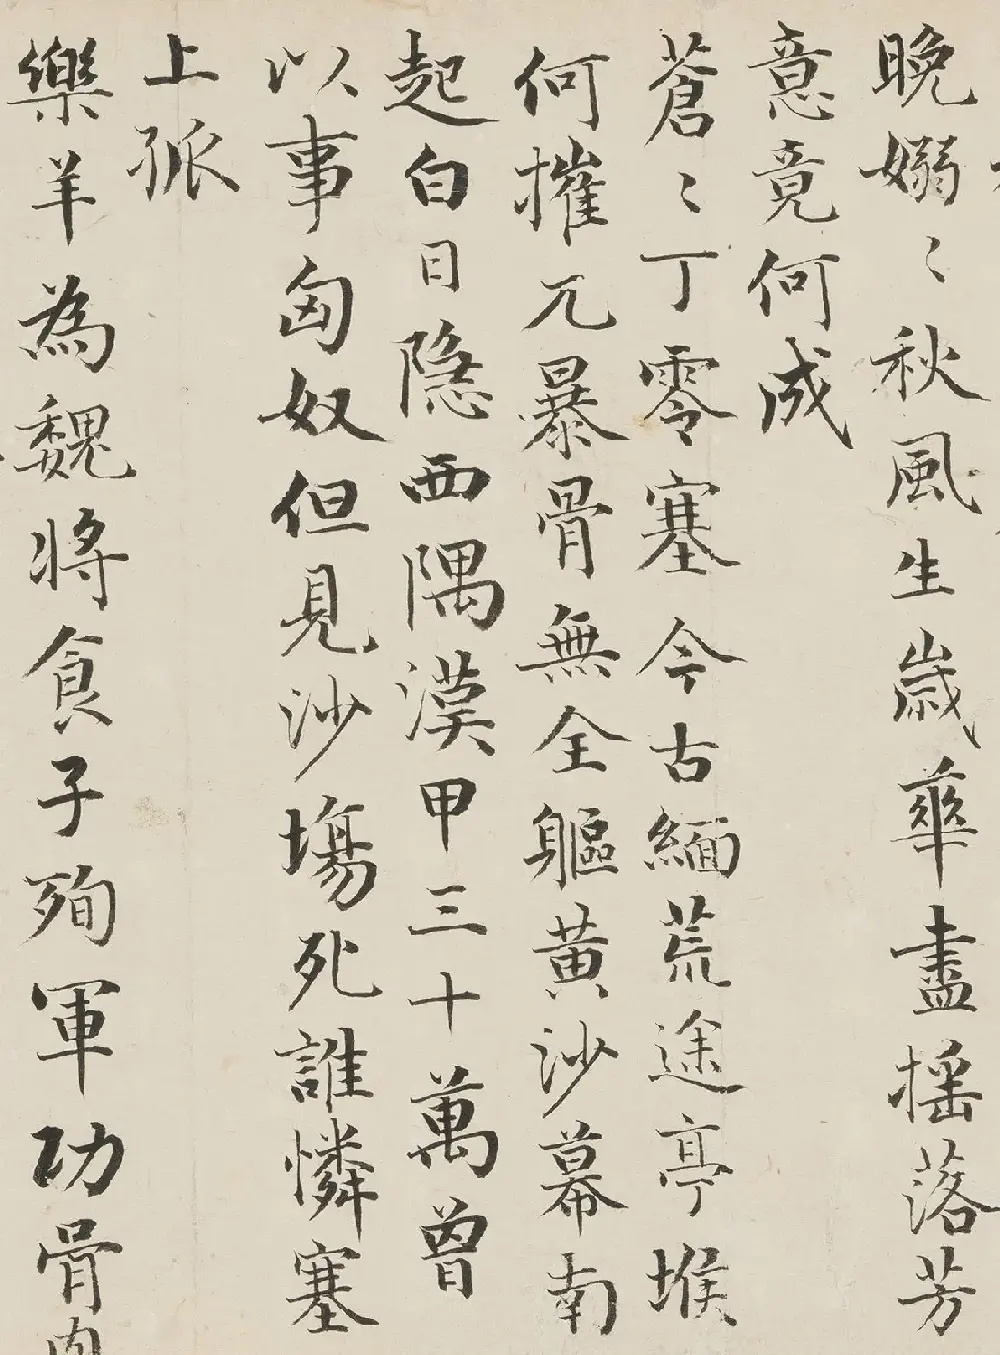 晚嫋〻秋風生歲華盡搖落芳
意竟何成
蒼〻丁零塞今古緬荒途亭堠
何摧兀暴骨無全軀黄沙幕南
起白日隠西隅漢甲三十萬曾
以事匈奴但見沙塲死誰憐塞
上孤
樂羊為魏將食子殉軍功骨肉